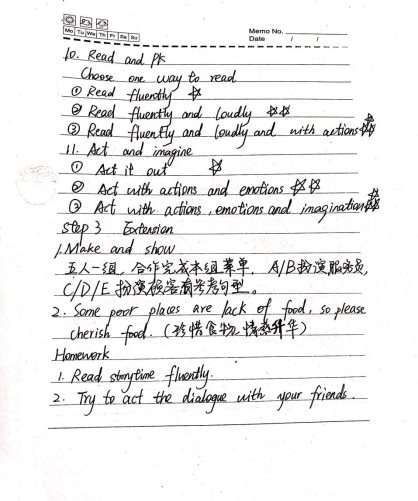 Mo Tu We Th Fr Sa Su
Memo No.
Date / /
10. Read and PK
Choose one way to read
① Read fluently ☆
② Read fluently and loudly ☆☆
③ Read fluently and loudly and with actions ☆☆☆
11. Act and imagine
① Act it out ☆
② Act with actions and emotions ☆☆
③ Act with actions, emotions and imagination ☆☆☆
Step 3 Extension
1. Make and show
五人一组，合作完成本组菜单，A/B扮演服务员，
C/D/E扮演顾客 参考句型。
2. Some poor places are lack of food, so please
cherish food. (珍惜食物，情感升华)
Homework
1. Read storytime fluently.
2. Try to act the dialogue with your friends.